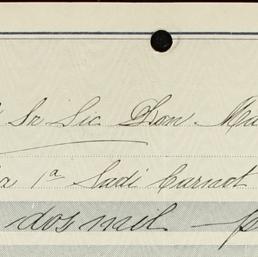 Sr Lic Don Ma
a 1ª Sadi Carnot
dos mil p